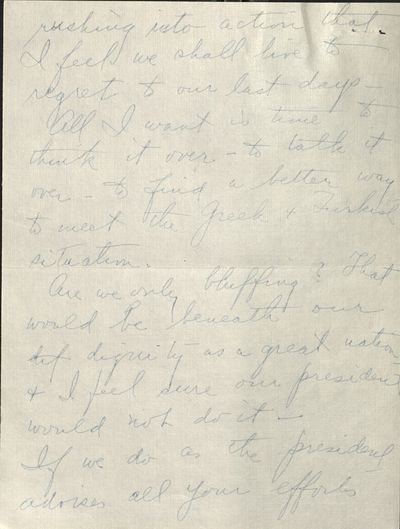 rushing into action that
I feel we shall live to
regret to our last days –
All I want is time to
think it over – to talk it
over – to find a better way
to meet the Greek & Turkish
situation.
Are we only bluffing? That
would be beneath our
dignity as a great nation
& I feel sure our president
would not do it –
If we do as the president
advises all your efforts